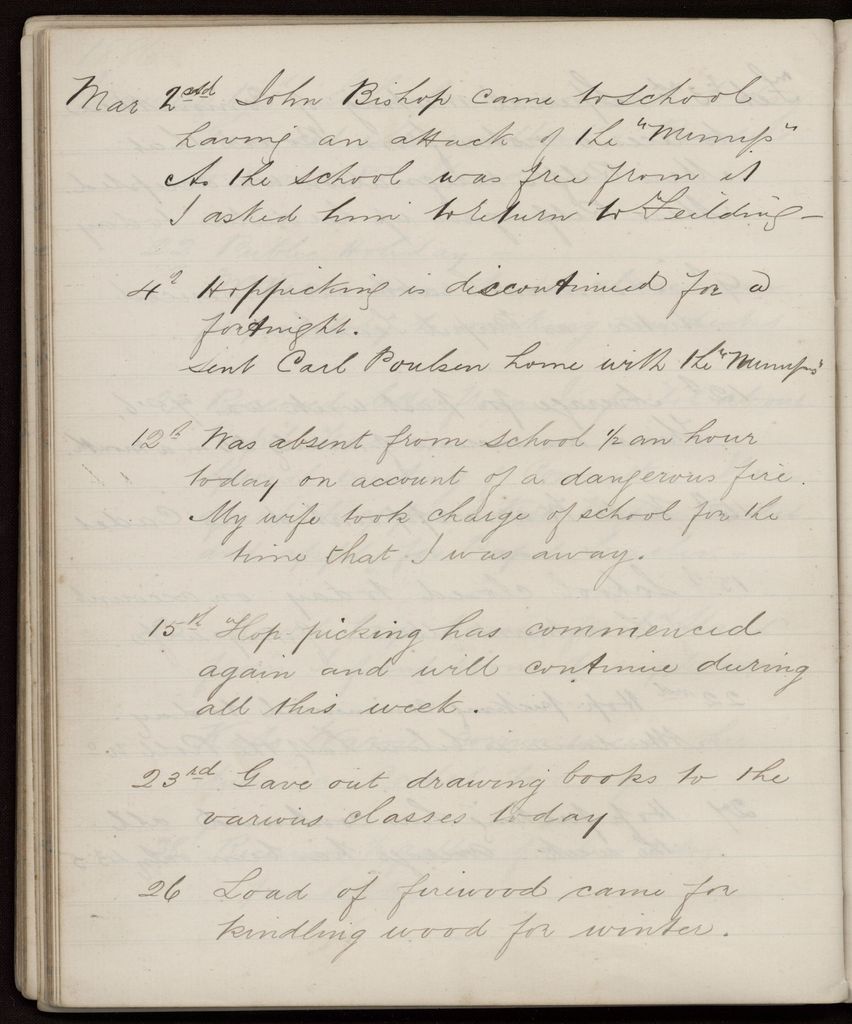 Mar 2nd John Bishop came to school
having an attack of the "Mumps"
As the school was free from it
I asked him to return to Feilding –
4th Hoppicking is discontinued for a
fortnight.
Sent Carl Poulsen home with the "Mumps"
12th Was absent from school 1/2 an hour
today on account of a dangerous fire.
My wife took charge of school for the
time that I was away.
15th Hop-picking has commenced
again and will continue during
all this week.
23rd Gave out drawing books to the
various classes today
26 Load of firewood came for
kindling wood for winter.